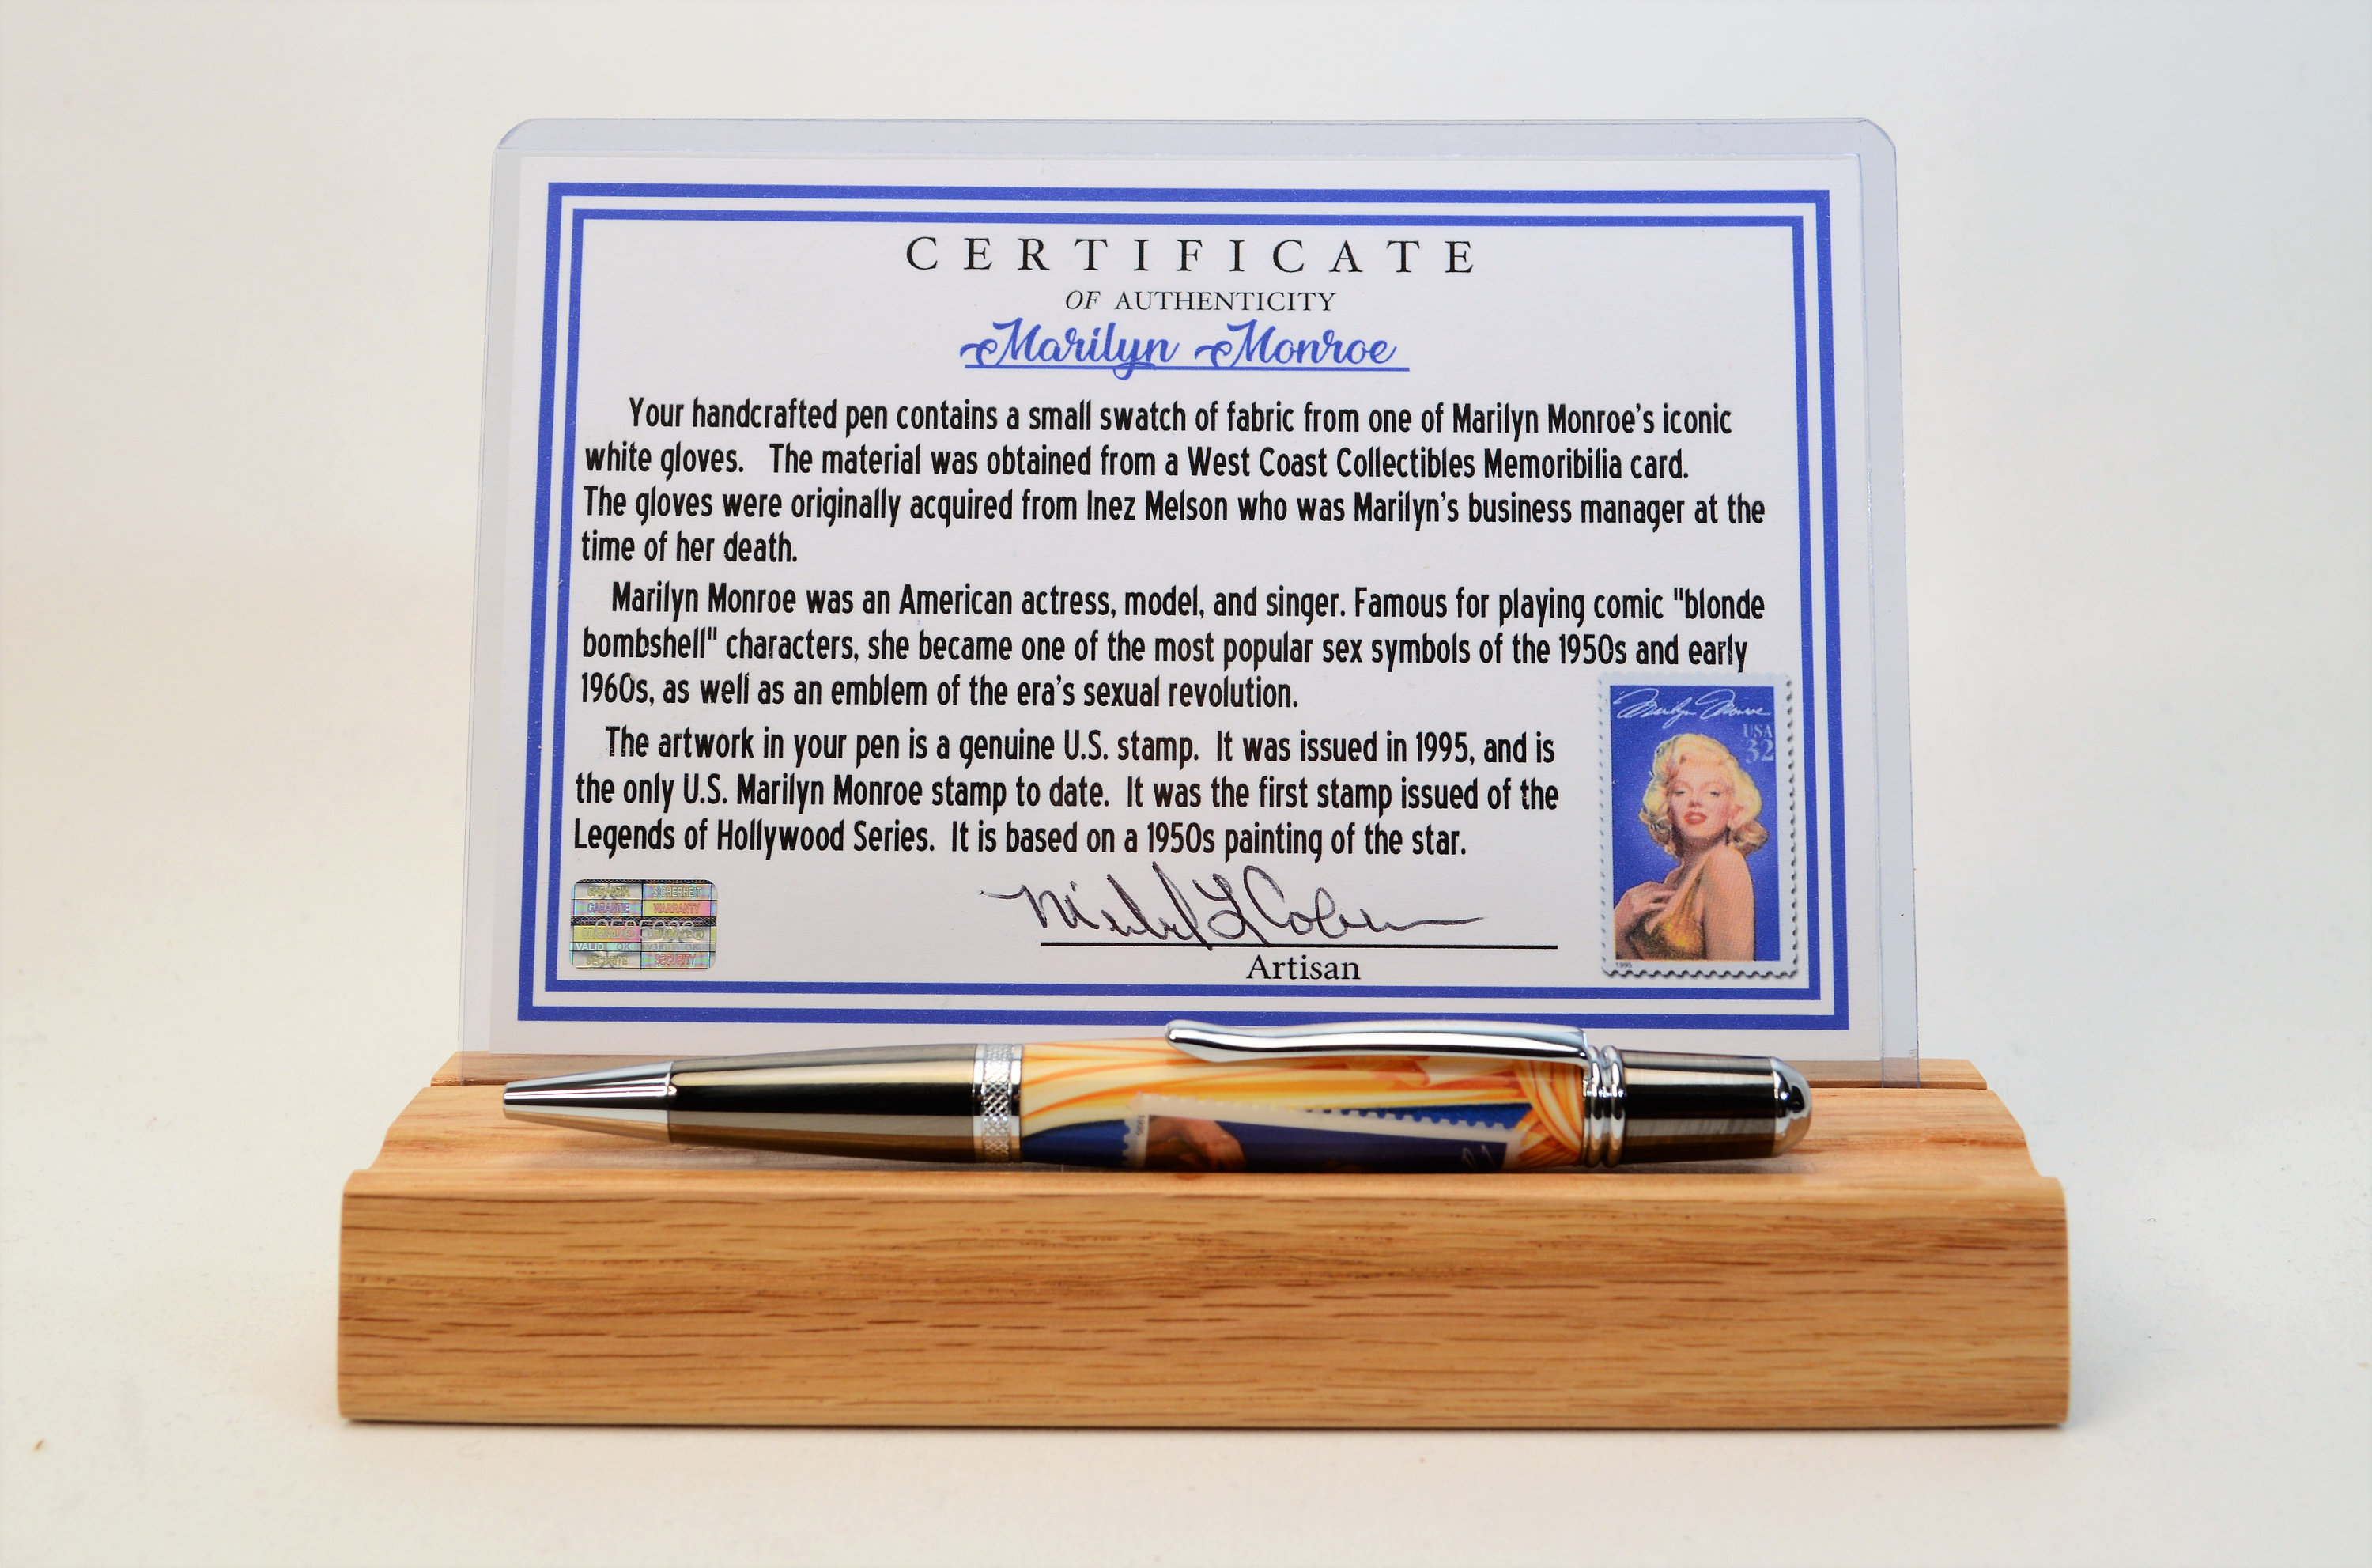 CERTIFICATE
OF AUTHENTICITY
Marilyn Monroe
Your handcrafted pen contains a small swatch of fabric from one of Marilyn Monroe's iconic
white gloves. The material was obtained from a West Coast Collectibles Memoribilia card.
The gloves were originally acquired from Inez Melson who was Marilyn's business manager at the
time of her death.
Marilyn Monroe was an American actress, model, and singer. Famous for playing comic "blonde
bombshell" characters, she became one of the most popular sex symbols of the 1950s and early
1960s, as well as an emblem of the era's sexual revolution.
The artwork in your pen is a genuine U.S. stamp. It was issued in 1995, and is
the only U.S. Marilyn Monroe stamp to date. It was the first stamp issued of the
Legends of Hollywood Series. It is based on a 1950s painting of the star.
Marilyn Monroe
USA
32
1995
GARANTIE WARRANTY
VALID OK VALID OK
SECURITY
Artisan
1995